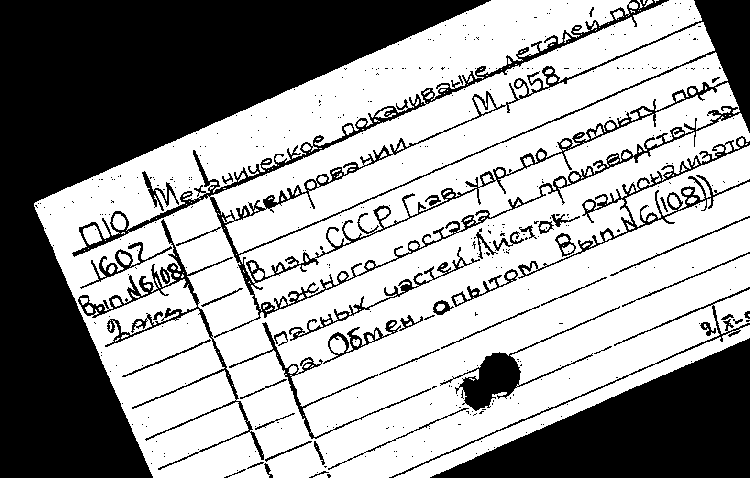 П10 Механическое покачивание деталей при
никелировании. М, 1958.
1607
Вып.№6(108)
2 экз.
(В изд.: СССР. Глав. упр. по ремонту под-
вижного состава и производству за-
пасных частей. Листок рационализато-
ра. Обмен. опытом. Вып.№6(108)).